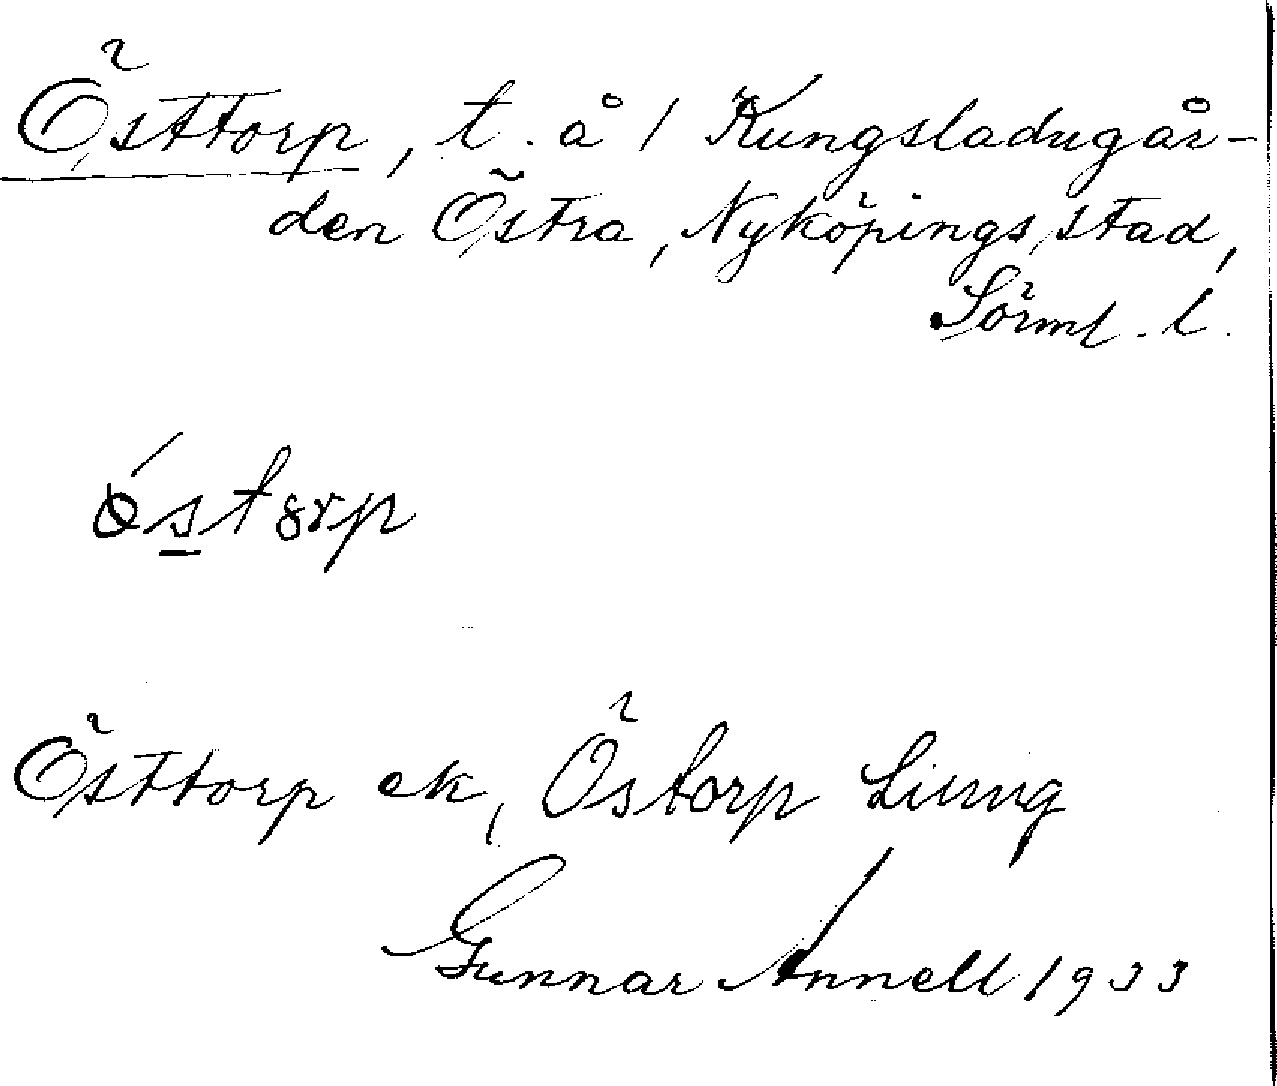 Östtorp, t. å / Kungsladugår-
den Östra, Nyköpings stad,
Sörml. l.
östorp
Östtorp ek, Östorp Ljung
Gunnar Annell 1933